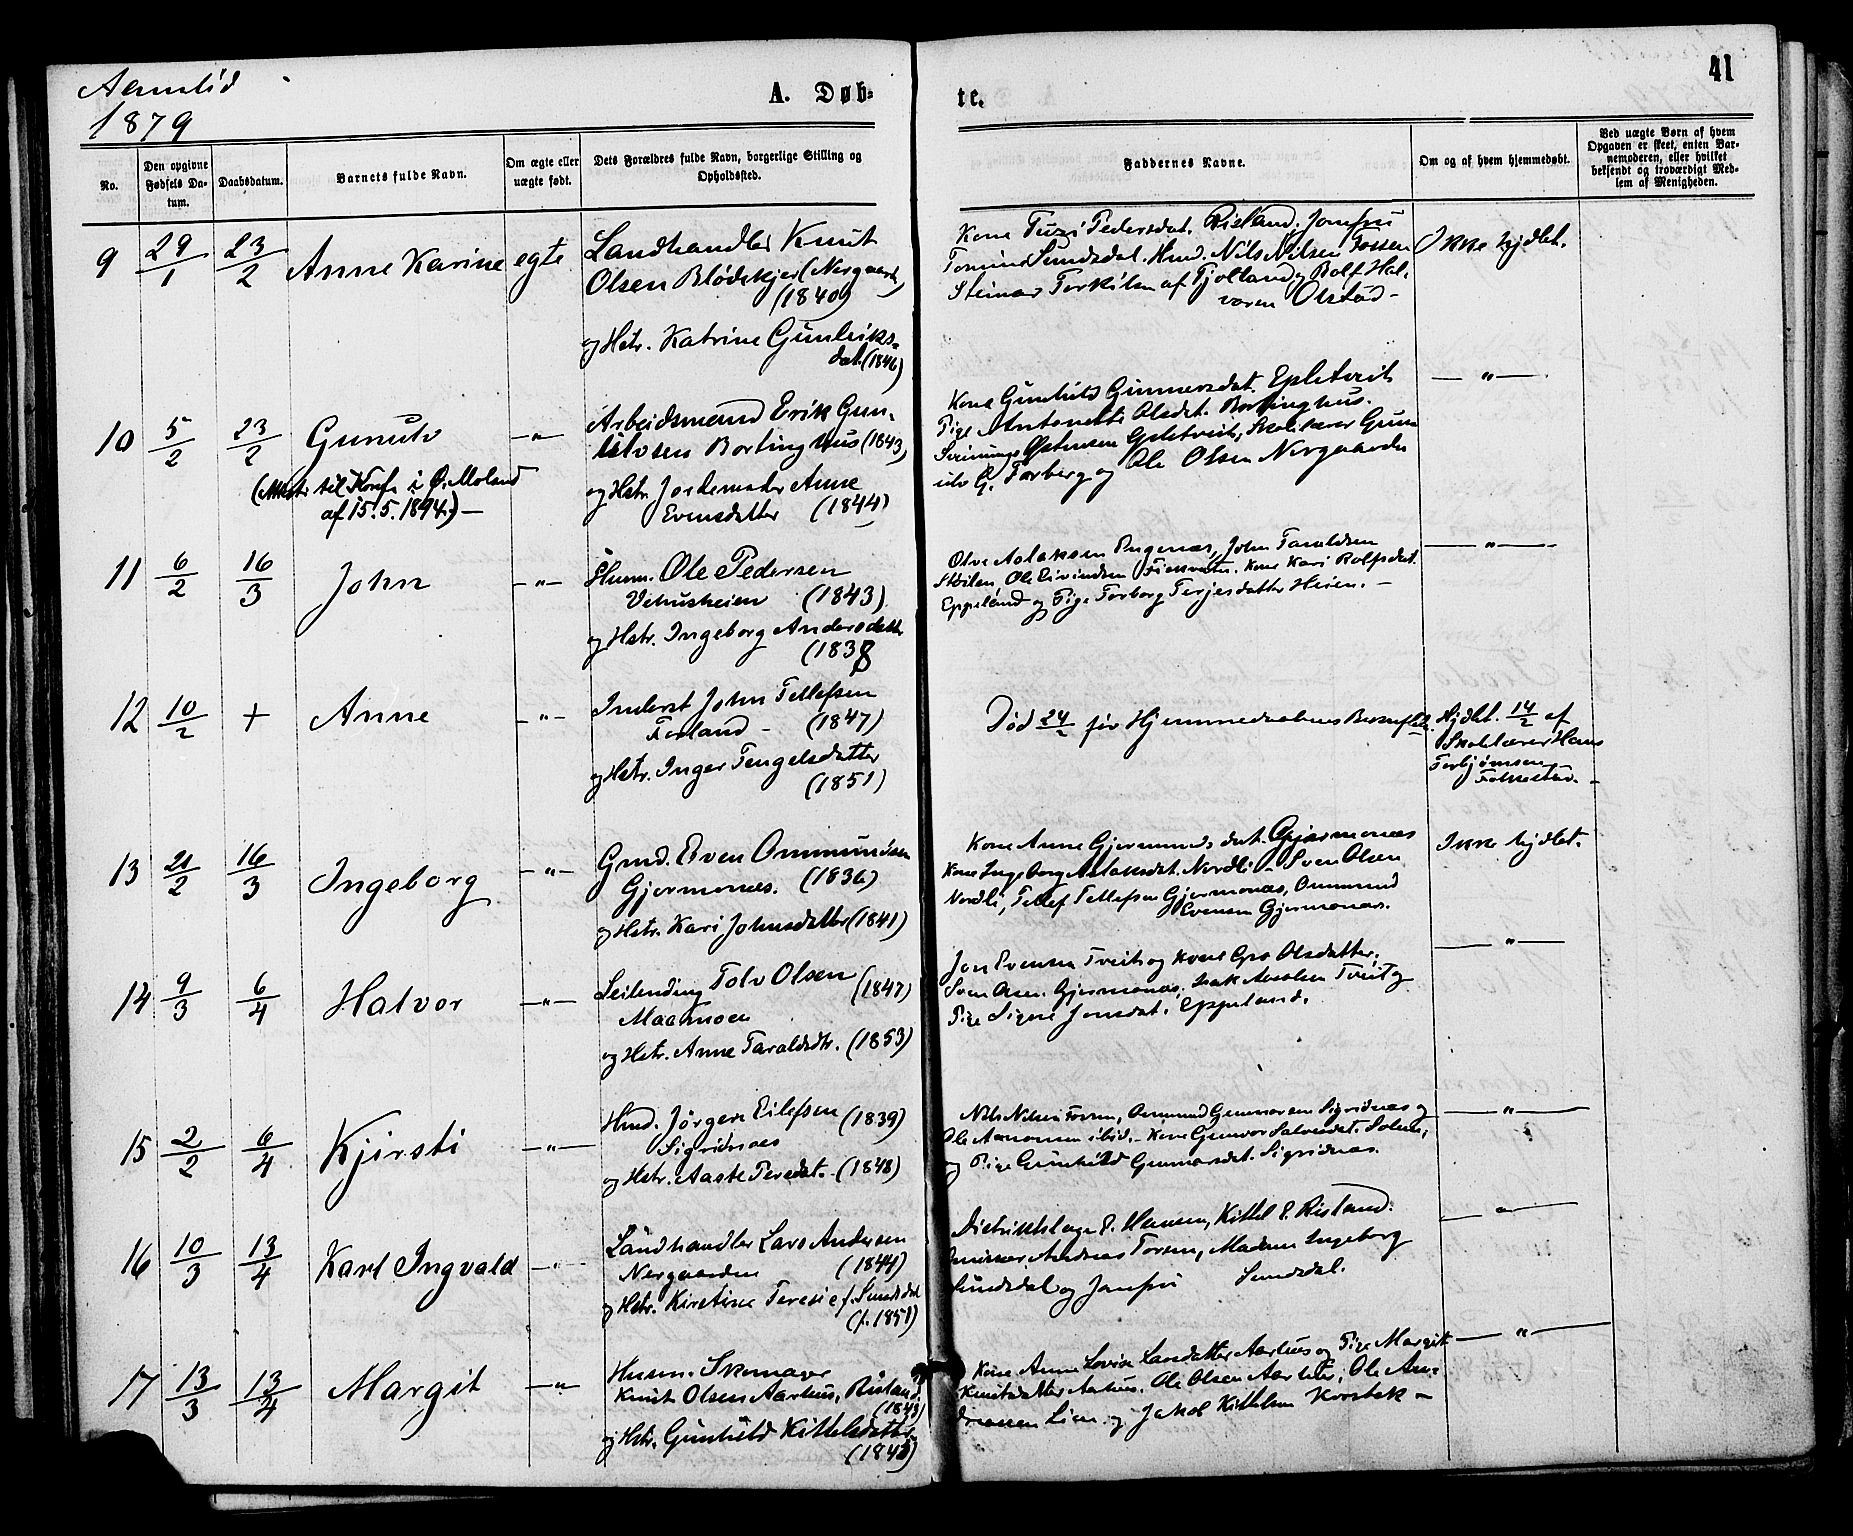 Aamlid
1879
A. Døb-
te.
41
No.
Den opgivne Fødsels Datum.
Daabsdatum.
Barnets fulde Navn.
Om ægte eller uægte født.
Dets Forældres fulde Navn, borgerlige Stilling og Opholdssted.
Faddernes Navne.
Om og af hvem hjemmedøbt.
Ved uægte Børn af hvem Opgaven er skeet, enten Barnemoderen, eller hvilket bekjendt og troværdigt Medlem af Menigheden.
9 29/1 23/2 Anne Karine egte
Landhandler Knut
Olsen Blödekjer (Nergaard)
(1840)
og Hstr. Katrine Gunleiks-
dat. (1846)
Kone Pedersdat. Risland, Jomfru
Sundsdal. Nils Nilsen
Steinar Torkilsen af Tjolland og Rolf Hal-
voren Olstad -
Ikke hjdbt.
10 5/2 23/2 Gunulv -"-
(Attest til Konf. i Ø. Moland
af 15.5.1894.) -
Arbeidsmand Erik Gun-
ulvsen Bortinghus (1843)
og Hstr. Jordemoder Anne
Evensdatter (1844)
Kone Gunhild Gunnersdat. Epletveit
Pige Antonette Olsdat. Bortinghus.
Østensen Epletveit, Skolelærer Gun
ulv G. Torberg og Ole Olsen Nergaarden
- " -
11 6/2 16/3 John -"-
Husm. Ole Pedersen
Vehusheien (1843)
og Hstr. Ingeborg Andersdatter
(1838
Olve Aslaksen Engenes, John Taraldsen
Ole Eivindsen Kone Kari Rolfsdat.
Eppeland og Pige Torborg Terjesdatter Heien. -
- " -
12 10/2 + Anne -"-
Inderst John Tellefsen
Forland - (1847)
og Hstr. Inger Tengelsdatter
(1851)
Död 24/2 før Hjemmedaabens
Hjdbt. 14/2 af
Skolelærer Hans
Torbjørnsen
Folkestad. -
13 21/2 16/3 Ingeborg -"-
Gmd. Even Ommundsen
Gjermones. (1836)
og Hstr. Kari Johnsdatter (1841)
Kone Anne Gjermundsdat. Gjermones
Kone Ingeborg Aslaksdat. Nordli - Sven Olsen
Nordli, Tellef Tellefsen Gjermones, Ommund
Evensen Gjermones.
Ikke hjdbt.
14 9/3 6/4 Halvor -"-
Leilending Tolv Olsen (1847)
Maamoen
og Hstr. Anne Taraldsdtr. (1853)
Jon Evensen Tveit og Kone Gro Olsdatter,
Sven Olsen. Gjermones. Isak Tveit og
Pige Signe Jonsdat. Eppeland.
- " -
15 2/2 6/4 Kjirsti -"-
Hmd. Jörgen Eilefsen (1839)
Sigridnes
og Hstr. Aaste Peredat. - (1848)
Nils Nilsen Fossen, Osmund Gunnarsen Sigridnes og
Ole Aanonsen ibid. - Kone Gunvor Salvesdat.
og Pige Gunhild Gunnarsdat. Sigridnes.
- " -
16 10/3 13/4 Karl Ingvald -"-
Landhandler Lars Andersen
Nergaarden (1844)
og Hstr. Kirstine Teresie f. Sundsdal
(f. 1851)
Distriktslæge P. Hansen, Kittel P. Risland.
Andreas Torsen, Madam Ingeborg
Sundsdal og Jomfru Sundsdal.
- " -
17 13/3 13/4 Margit -"-
Husm. Skomager
Knut Olsen Aarhus, Risland,
(1843)
og Hstr. Gunhild Kittelsdatter
(1842)
Kone Anne Lovise Larsdatter Aarhus og Pige Margit
Knutsdatter Aarhus. Ole Olsen Ole An-
dreassen Lien. og Jakob Kittelsen -
- " -